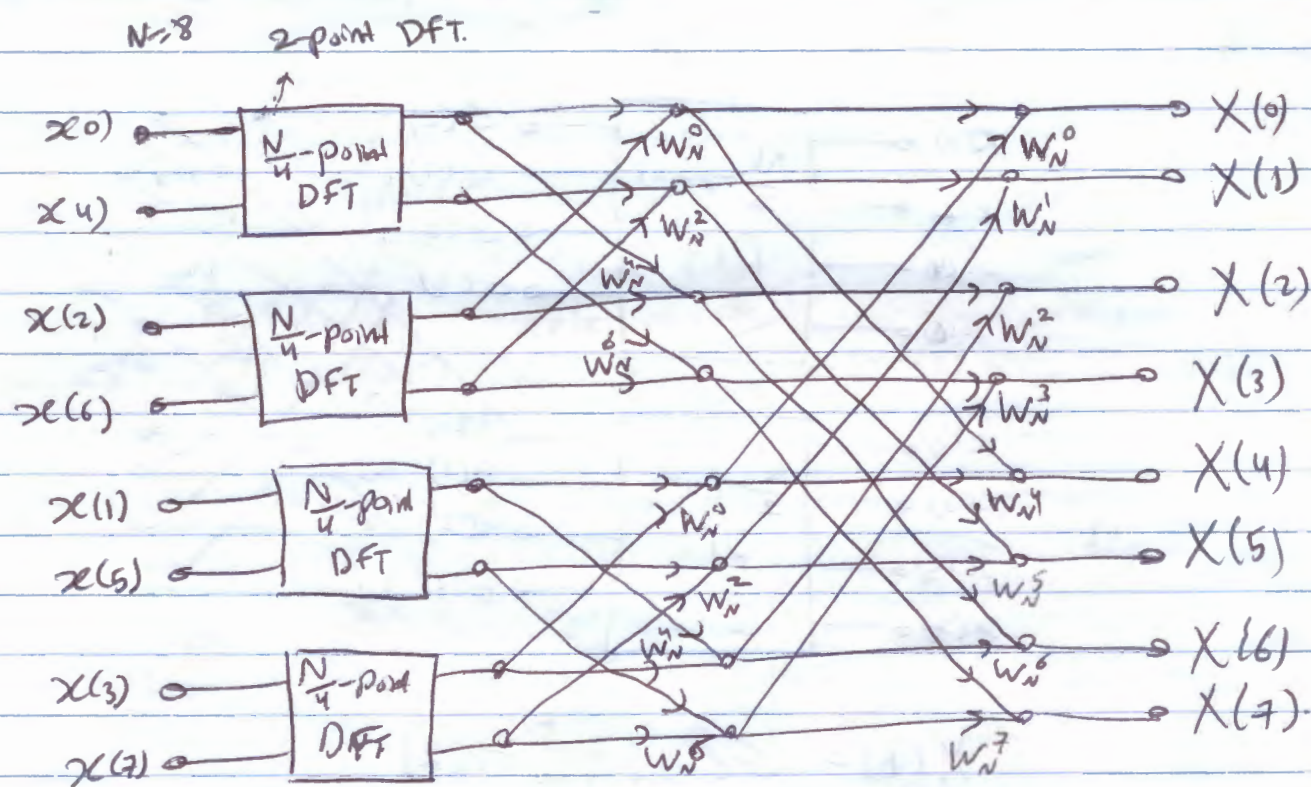 N=8 2-point DFT.
x0)
x(4)
N/4-point
DFT
x(2)
x(6)
N/4-point
DFT
x(1)
x(5)
N/4-point
DFT
x(3)
x(7)
N/4-point
DFT
W_N^0
W_N^2
W_N^4
W_N^6
W_N^0
W_N^2
W_N^4
W_N^6
W_N^0
W_N^1
W_N^2
W_N^3
W_N^4
W_N^5
W_N^6
W_N^7
X(0)
X(1)
X(2)
X(3)
X(4)
X(5)
X(6)
X(7).